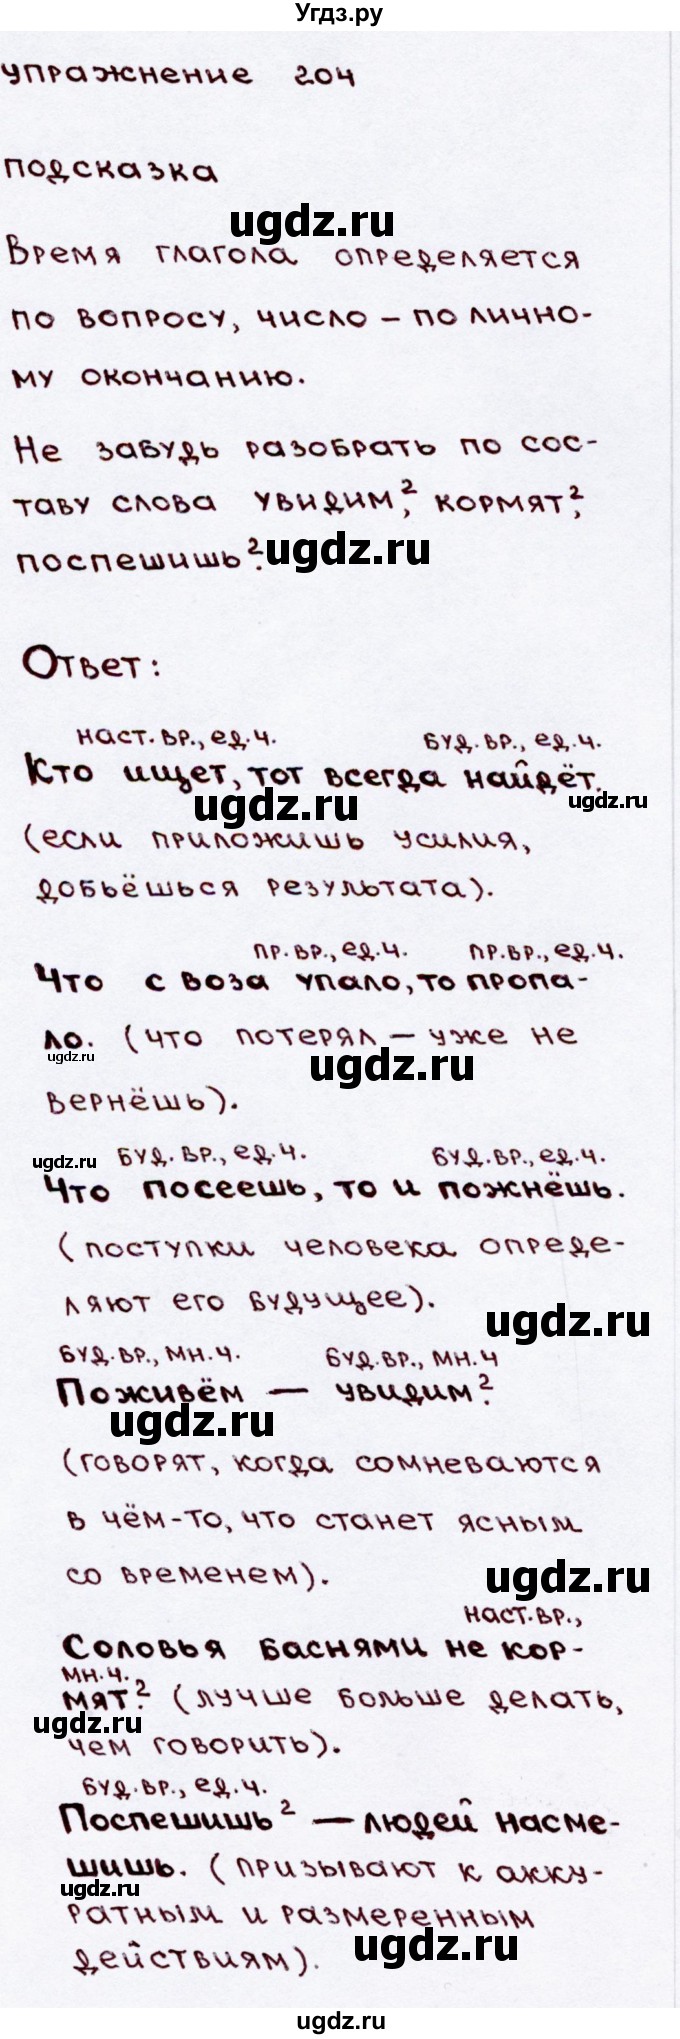 Угдз.ру
упражнение 204
подсказка
ugdz.ru
Время глагола определяется
по вопросу, число – по лично-
му окончанию.
Не забудь разобрать по сос-
таву слова увидим², кормят²,
поспешишь². ugdz.ru
Ответ:
наст. вр., ед.ч. буд. вр., ед.ч.
Кто ищет, тот всегда найдёт.
ugdz.ru ugdz.ru
(если приложишь усилия,
добьёшься результата).
пр. вр., ед.ч. пр.вр., ед.ч.
Что с воза упало, то пропа-
ло. (что потерял – уже не
ugdz.ru ugdz.ru
вернёшь).
ugdz.ru буд. вр., ед.ч. буд.вр., ед.ч.
Что посеешь, то и пожнёшь.
(поступки человека опреде-
ляют его будущее).
ugdz.ru
буд.вр., мн.ч. буд.вр., мн.ч
Поживём – увидим².
ugdz.ru
(говорят, когда сомневаются
в чём-то, что станет ясным
со временем).
ugdz.ru
наст.вр.,
Соловья баснями не кор-
мн.ч.
мят². (лучше больше делать,
ugdz.ru
чем говорить).
буд.вр., ед.ч.
Поспешишь² – людей насме-
шишь. (призывают к акку-
ugdz.ru
ратным и размеренным
действиям).
ugdz.ru
ugdz.ru